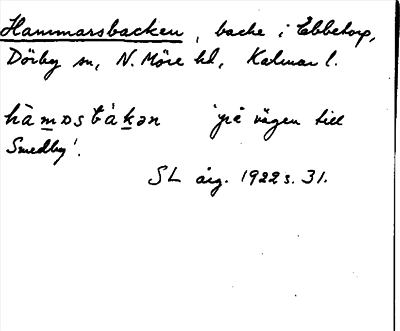 Hammarsbacken, backe i Ebbetorp,
Dörby sn, N. Möre hd, Kalmar l.
hàmɒstàkən 'på vägen till
Smedby'.
SL årg. 1922 s. 31.